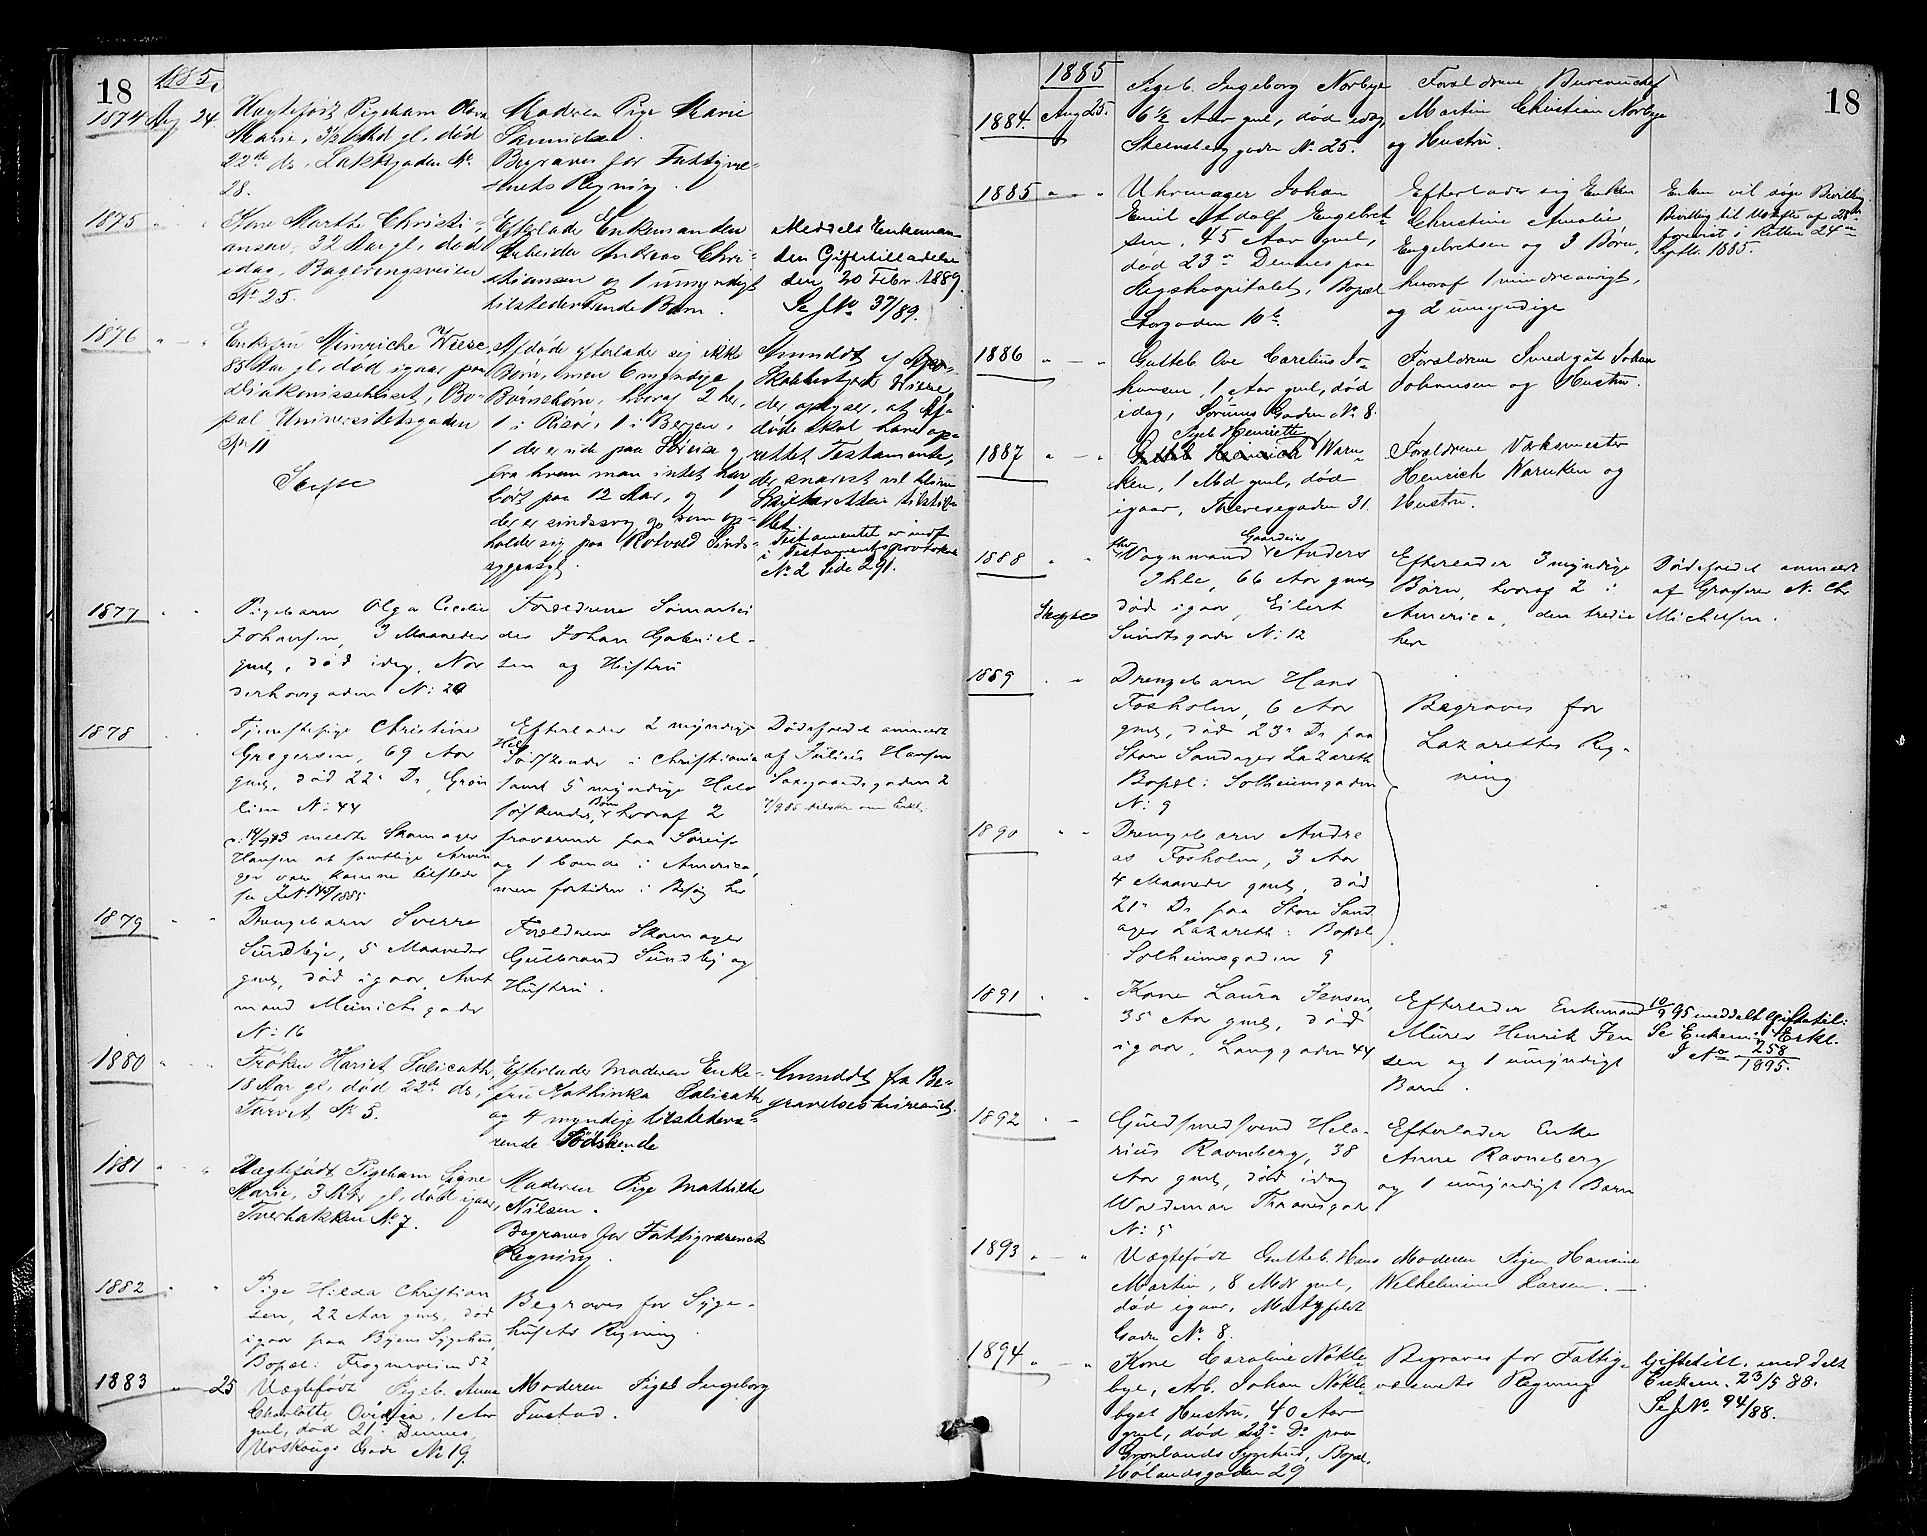 18
1885.
1874 Aug 24.
Uægtefødt Pigebarn Olava
Marie, 3½ Md gl, død
22de ds, Lakkegaden No
28.
Moderen Pige Marie
Begraves for Fattigvæ-
senets Regning.
1875 " - "
Kone Marthe Christi-
ansen, 32 Aar gl, død
idag, Vageringsveien
No 25.
Efterlader Enkemanden
Arbeider Andreas Chri-
stiansen og 1 umyndigt
tilstedeværende Barn.
Meddelt Enkeman-
den Giftetilladelse
den 20 Febr. 1889.
Se J No 37/89.
1876 " - "
Enkefru Hinriche Wiese,
85 Aar gl, død igaar paa
Diakonissehuset, Bo-
pæl Universitetsgaden
No 11
Skifte
Afdøde efterlader sig ikke
Børn, men 6 myndige
Børnebørn, hvoraf 2 her,
1 i Risør, 1 i Bergen,
1 der er ude paa Søreise og
fra hvem man intet har
hørt paa 12 Aar, og 1
der er sindssyg og som op-
holder sig paa Rotvold Sinds-
sygeasyl.
Anmeldt af
der oplyser, at Af-
døde skal have op-
rettet Testamente,
der snarest vil blive
Skifteretten tilstil-
let.
Testamentet er indf
i Testamentsprotokol
No 2 Side 291.
1877 " "
Pigebarn Olga Cecilie
Johansen, 3 Maaneder
gml, død idag, Nor
derhovsgaden No: 20
Forældrene Sømarbei
der Johan Gabriel-
sen og Hustru
1878 " "
Tjenestepige Christine
Gregersen, 69 Aar
gml, død 22de Ds, Grøn
lien No: 44
meldte Skomager
Hansen at samtlige Arvin
ger vare komne tilstede
se J No 145/1885
Efterlader 2 myndige
Hel
Sødskende i Christiania
samt 5 myndige Halv
sødskendes Børn hvoraf 2
fraværende paa Søreise
og 1 boende i America,
men fortiden i Besøg her
Dødsfaldet anmeldt
af Julius Hansen
Saxegaardsgaden 2
1879 " "
Drengebarn Sverre
Sundbye, 5 Maaneder
gml, død igaar, Amt
mand Meinichsgade
No: 16
Forældrene Skomager
Gulbrand Sundby og
Hustru.
1880 " "
Frøken Hariet Salicath,
18 Aar gl, død 22de ds,
Torvet No 5.
Efterlader Moderen Enke-
fru Kathinka Salicath
og 4 myndige tilstedevæ-
rende Sødskende
Anmeldt fra Be-
gravelsesbureauet.
1881 " "
Uægtefødt Pigebarn Signe
Marie, 3 Mdr gl, død igaar,
Tverbakken No 7.
Moderen Pige Mathilde
Nilsen.
Begraves for Fattigvæsenets
Regning.
1882 " "
Pige Hilda Christian
sen, 22 Aar gml, død
igaar paa Byens Sygehus,
Bopæl: Frognerveien 52
Begraves for Syge-
husets Regning.
1883 " 25
Uægtefødt Pigeb. Anna
Charlotte Ovidia, 1 Aar
gml, død 21de Dennes,
Urskougs Gade No 19.
Moderen Pigeb Ingeborg
Finstad.
18
1885
1884. Aug 25.
Pigeb. Ingeborg Norbye
6½ Aar gml, død idag,
Steensberggaden No. 25.
Forældrene Bureauchef
Martin Christian Norbye
og Hustru.
1885 " - "
Uhrmager Johan
Emil Adolf Engebret
sen, 45 Aar gml,
død 23de Dennes paa
Rigshospitalet, Bopæl
Storgaden 10 b.
Efterlader sig Enken
Christine Amalie
Engebretsen og 3 Børn,
hvoraf 1 mindreaarigt,
og 2 umyndige
Enken vil søge Bevilling
Bevilling til Uskifte af 28de
forevist i Retten 24de
Septbr. 1885.
1886 " - "
Gutteb Ove Carelius Jo-
hansen, 1 Aar gml, død
idag, Sørums Gaden No 8.
Forældrene Smed Johan
Johansen og Hustru.
1887 " - "
Pigeb Henriette
Gutteb Heinrich Warn-
ken, 1 Md gml, død
igaar, Theresegaden 31.
Forældrene Værksmester
Henrich Warnken og
Hustru.
1888 " "
Skiftes
fhv Vognmand Gaardeier Anders
Ihle, 66 Aar gml,
død igaar, Eilert
Sundtsgade No: 12
Efterlader 3 myndige
Børn, hvoraf 2 i
America, den tredie
her
Dødsfaldet anmeldt
af Grosserer N. Chr
Michelsen.
1889 " "
Drengebarn Hans
Fosholm, 6 Aar
gml, død 23de Ds paa
Store Sandager Lazareth
Bopæl: Solheimsgaden
No: 9
Begraves for
Lazarettes Reg-
ning
1890 " "
Drengebarn Andre
as Fosholm, 3 Aar
4 Maaneder gml, død
21de Ds paa Store Sand
ager Lazareth: Bopæl
Solheimsgaden 9
1891 " "
Kone Laura Jensen,
35 Aar gml, død
igaar, Langgaden 44
Efterlader Enkemand
Murer Henrik Jen
sen og 1 umyndigt
Barn.
10/9 95 meddelt Giftetil:
Se Enkem. Erkl.
J No 258/1895.
1892 " "
Guldsmedsvend Hela-
rius Ravneberg, 38
Aar gml, død idag
Waldemar Thranesgade
No: 5
Efterlader Enke
Anne Ravneberg
og 1 umyndigt Barn
1893 " - "
Uægtefødt Gutteb. Hans
Martin, 8 Mdr gml,
død igaar, Motzfeldt
Gade No. 8.
Moderen Pigen Hansine
Wilhelmine Larsen.
1894 " - "
Kone Caroline Nøkle-
bye, Arb. Johan Nøkle-
byes Hustru, 40 Aar
gml, død 23de Ds paa
Grønlands Sygehus, Bopæl,
Hølandsgaden 29
Begraves for Fattig-
væsenets Regning
Giftetill. meddelt
Enkem. 23/5 88.
Se J No 94/88.